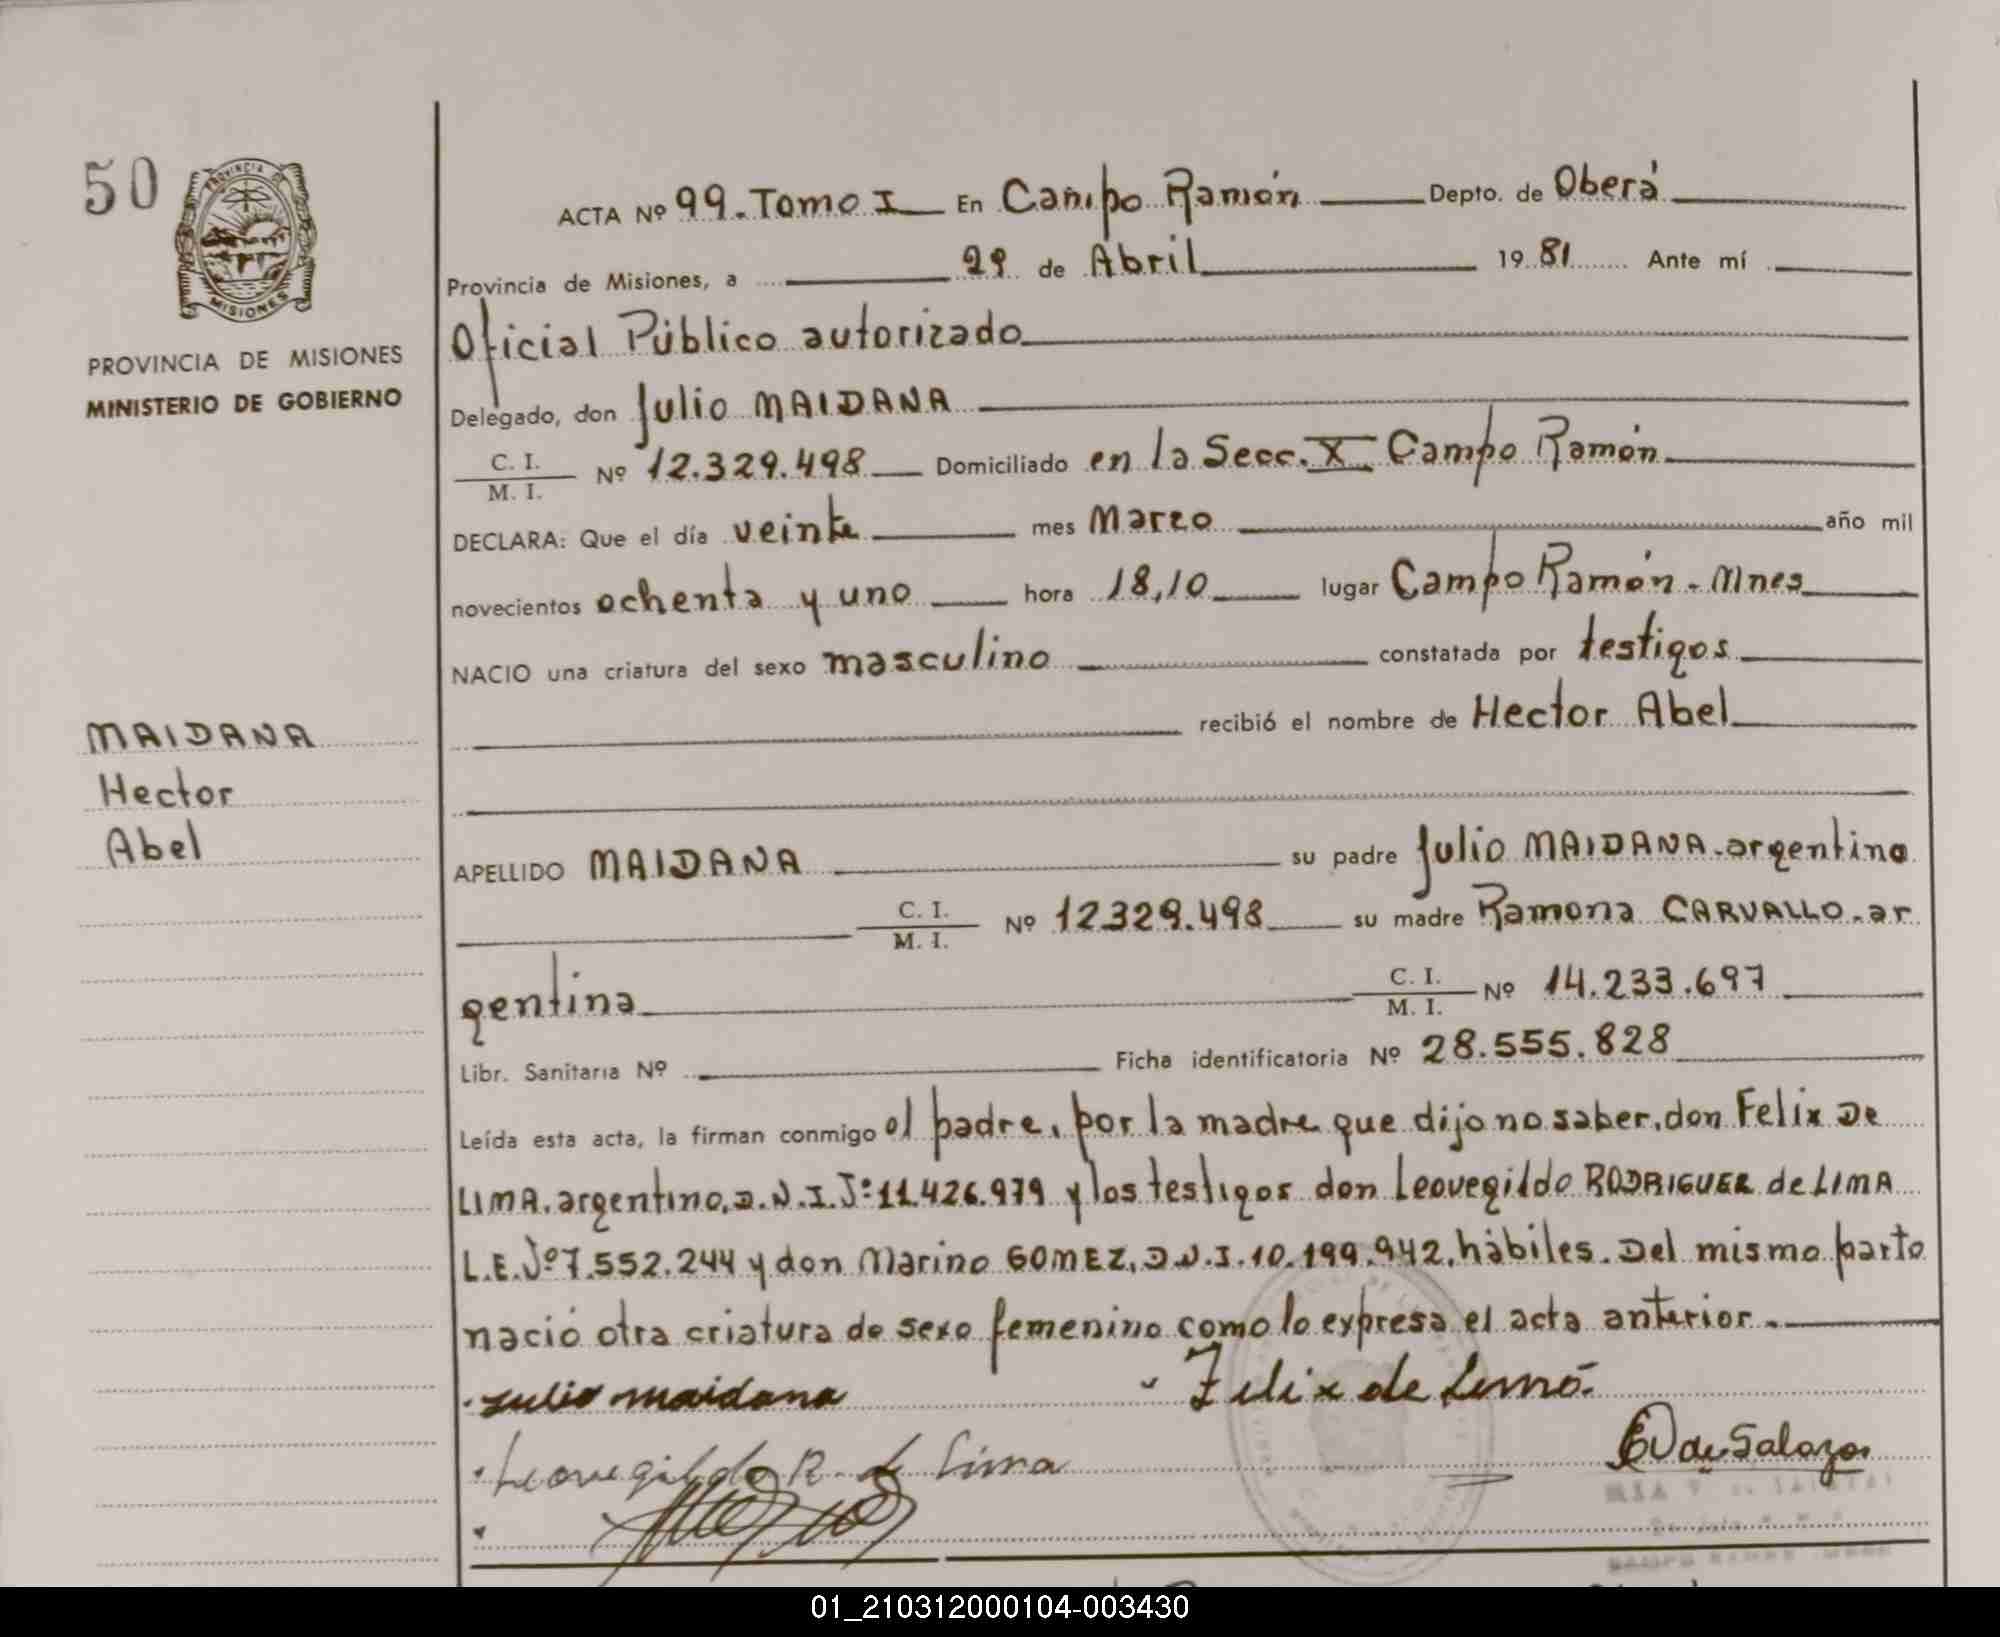 50
PROVINCIA DE
MISIONES
PROVINCIA DE MISIONES
MINISTERIO DE GOBIERNO
ACTA Nº 99. Tomo I En Campo Ramón Depto. de Oberá
Provincia de Misiones, a 29 de Abril 19 81 Ante mí
Oficial Público autorizado
Delegado, don Julio MAIDANA
C. I.
M. I. Nº 12.329.498 Domiciliado en la Secc. X Campo Ramón
DECLARA: Que el día veinte mes Marzo año mil
novecientos ochenta y uno hora 18,10 lugar Campo Ramón - Mnes
NACIO una criatura del sexo masculino constatada por testigos
recibió el nombre de Hector Abel
MAIDANA
Hector
Abel
APELLIDO MAIDANA su padre Julio MAIDANA. argentino
C. I.
M. I. Nº 12329.498 su madre Ramona CARVALLO. ar
gentina C. I.
M. I. Nº 14.233.697
Libr. Sanitaria Nº Ficha identificatoria Nº 28.555.828
Leída esta acta, la firman conmigo el padre, por la madre que dijo no saber, don Felix De
LIMA. argentino, D.N.I. Nº 11.426.979 y los testigos don Leovegildo RODRIGUEZ de LIMA
L.E. Nº 7.552.244 y don Marino GOMEZ, D.N.I. 10.199.942, hábiles. Del mismo parto
nació otra criatura de sexo femenino como lo expresa el acta anterior.
Julio maidana Felix de Lima
Leovegildo R. de Lima de Salazar
01_210312000104-003430